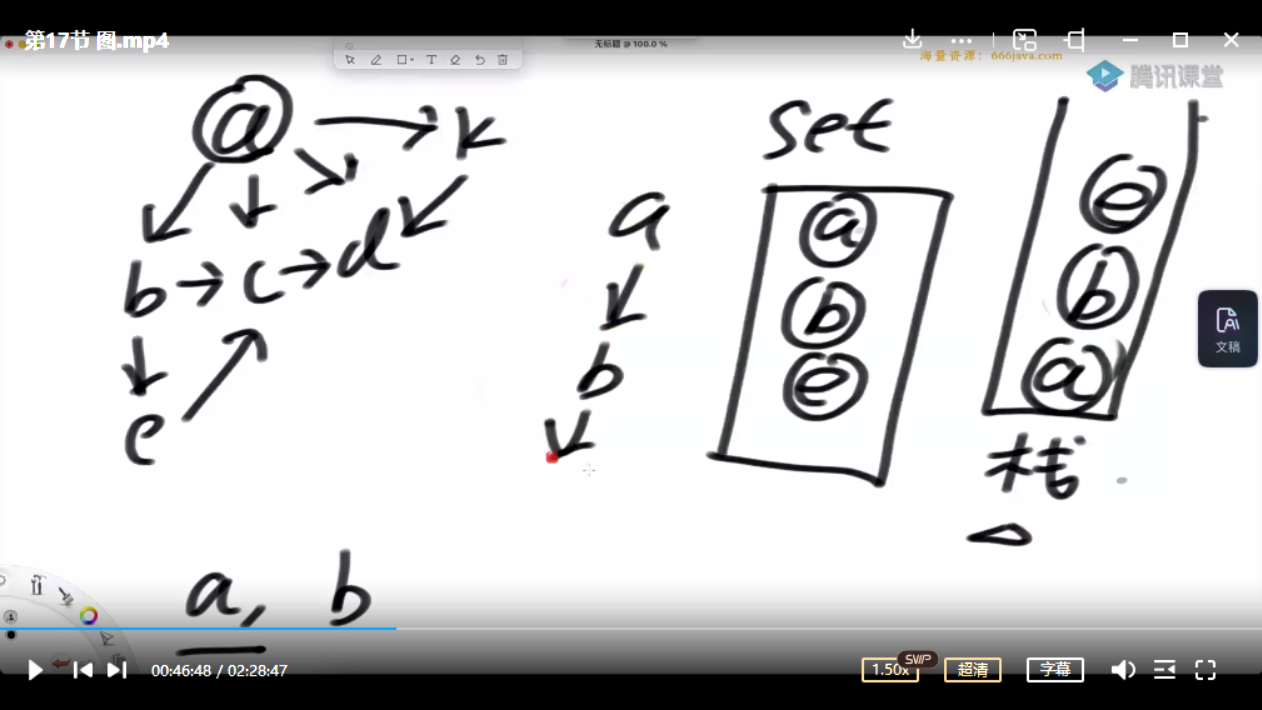 第17节 图.mp4
无标题 @ 100.0 %
海量资源：666java.com
腾讯课堂
a → k
b → c → d
e
a
b
set
a
b
e
e
b
a
栈
文稿
a, b
00:46:48 / 02:28:47
1.50x
SVIP
超清
字幕